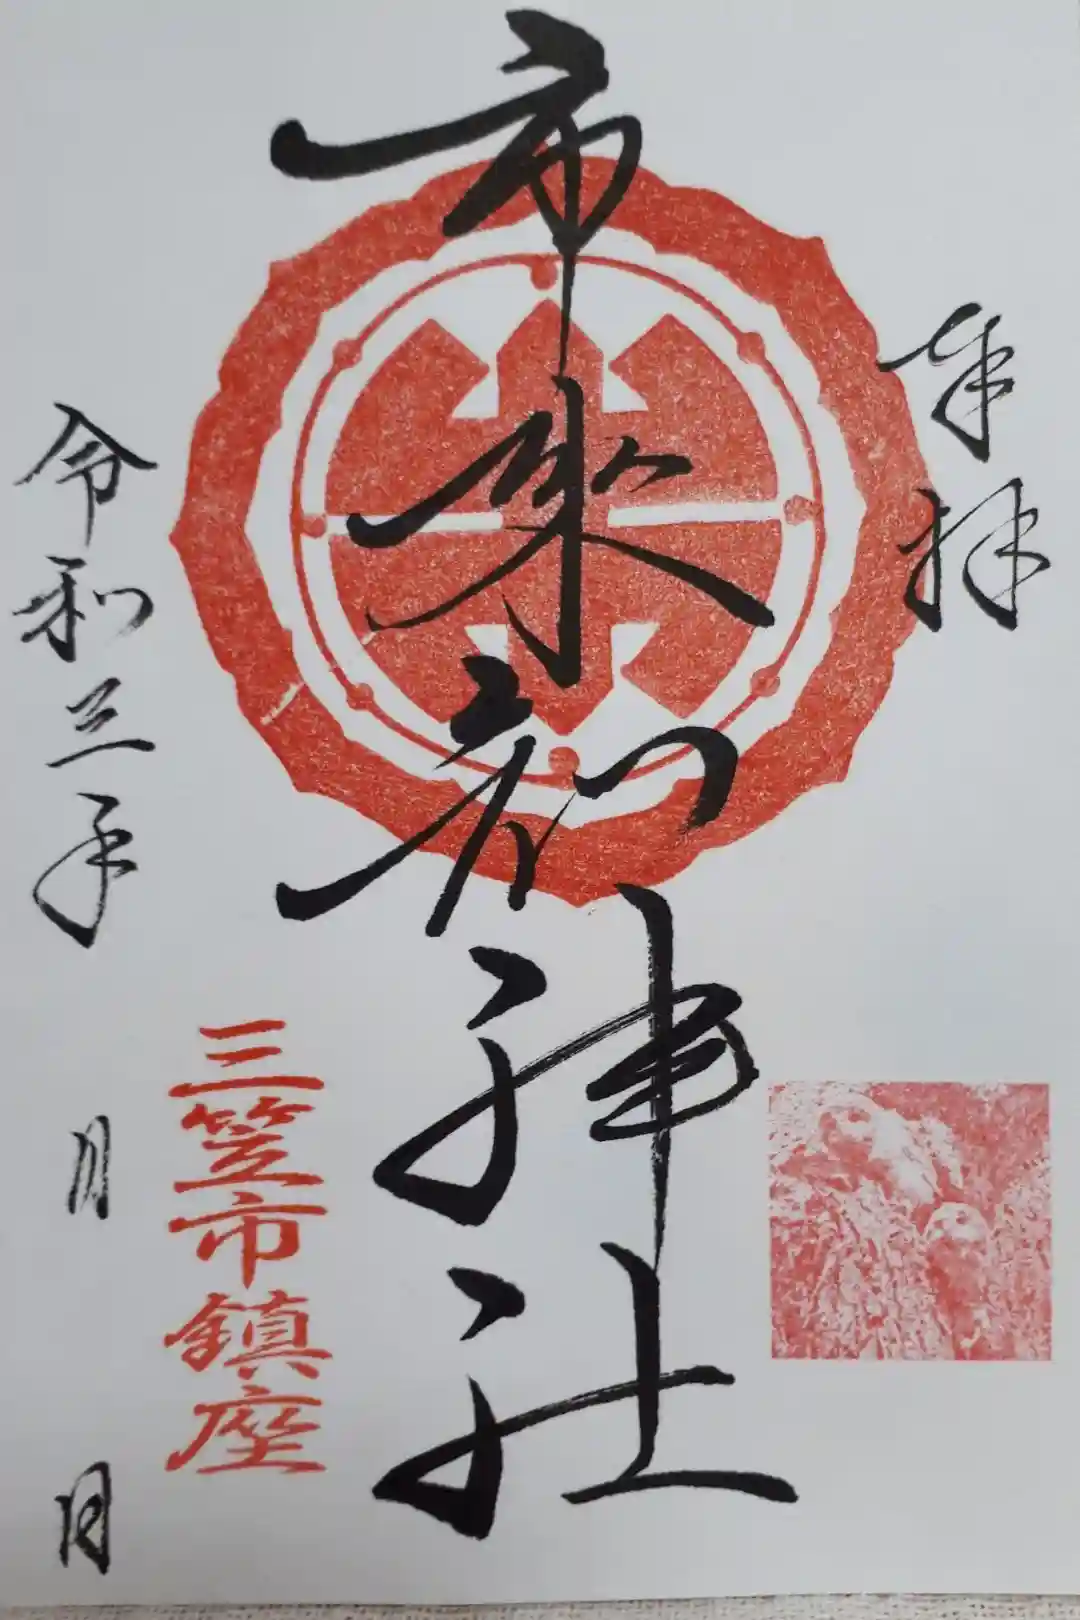 奉拝
市来知神社
三笠市鎮座
令和三年
月
日